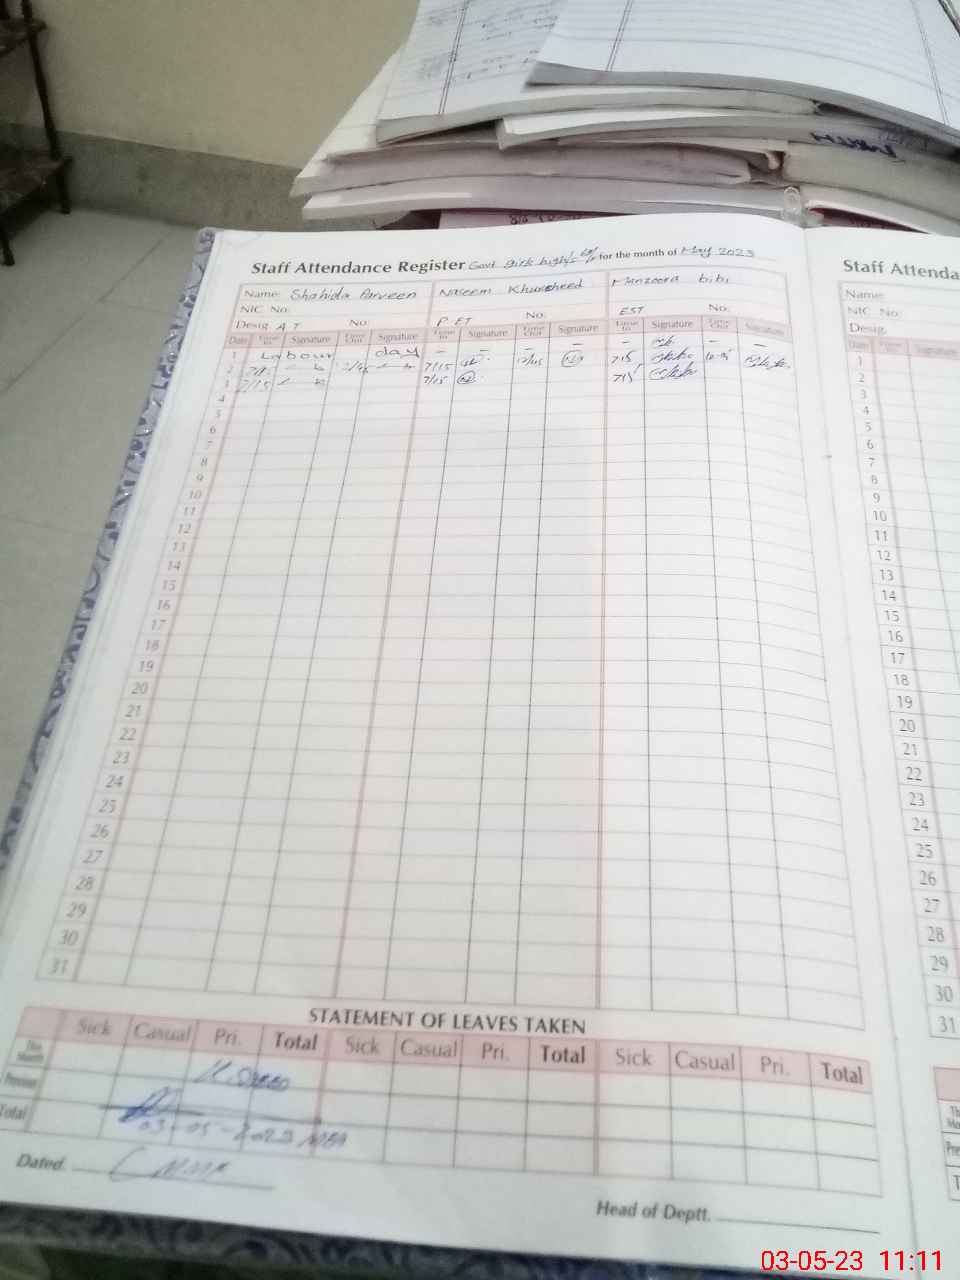 Staff Attendance Register Govt girls high/s for the month of May 2023
Name: Shahida Parveen Naseem Khursheed Manzoora bibi
NIC No:
Desig. A T No: P-ET No: EST No:
Date Time In Signature Time Out Signature Time In Signature Time Out Signature Time In Signature Time Out Signature
1 Labour day - - - - - - -
2 7/15 7/15 12/45 7/15
3 7/15 7/15 7/15
4
5
6
7
8
9
10
11
12
13
14
15
16
17
18
19
20
21
22
23
24
25
26
27
28
29
30
31
STATEMENT OF LEAVES TAKEN
Sick Casual Pri. Total Sick Casual Pri. Total Sick Casual Pri. Total
This Month
Previous
Total
03-05-2023 MEA
Dated.
Head of Deptt.
Staff Attenda
Name:
NIC No:
Desig.
Date Time In Signature
1
2
3
4
5
6
7
8
9
10
11
12
13
14
15
16
17
18
19
20
21
22
23
24
25
26
27
28
29
30
31
Th
Mo
Pre
T
03-05-23 11:11